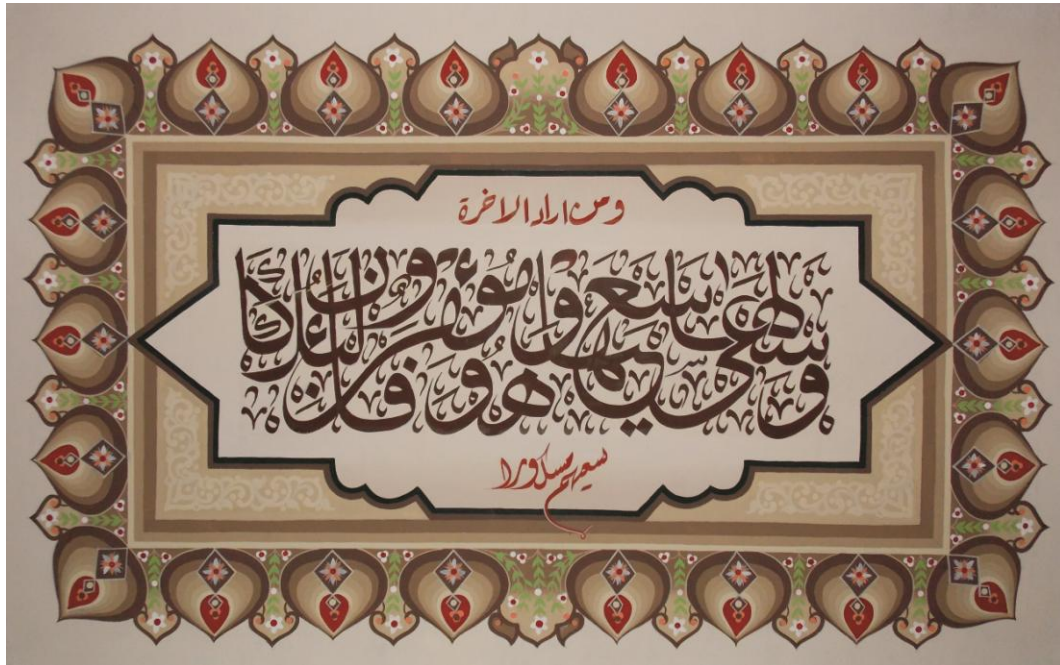 ومن اراد الاخرة
وسعى لها سعيها وهو مؤمن فاولئك كان
سعيهم مشكورا